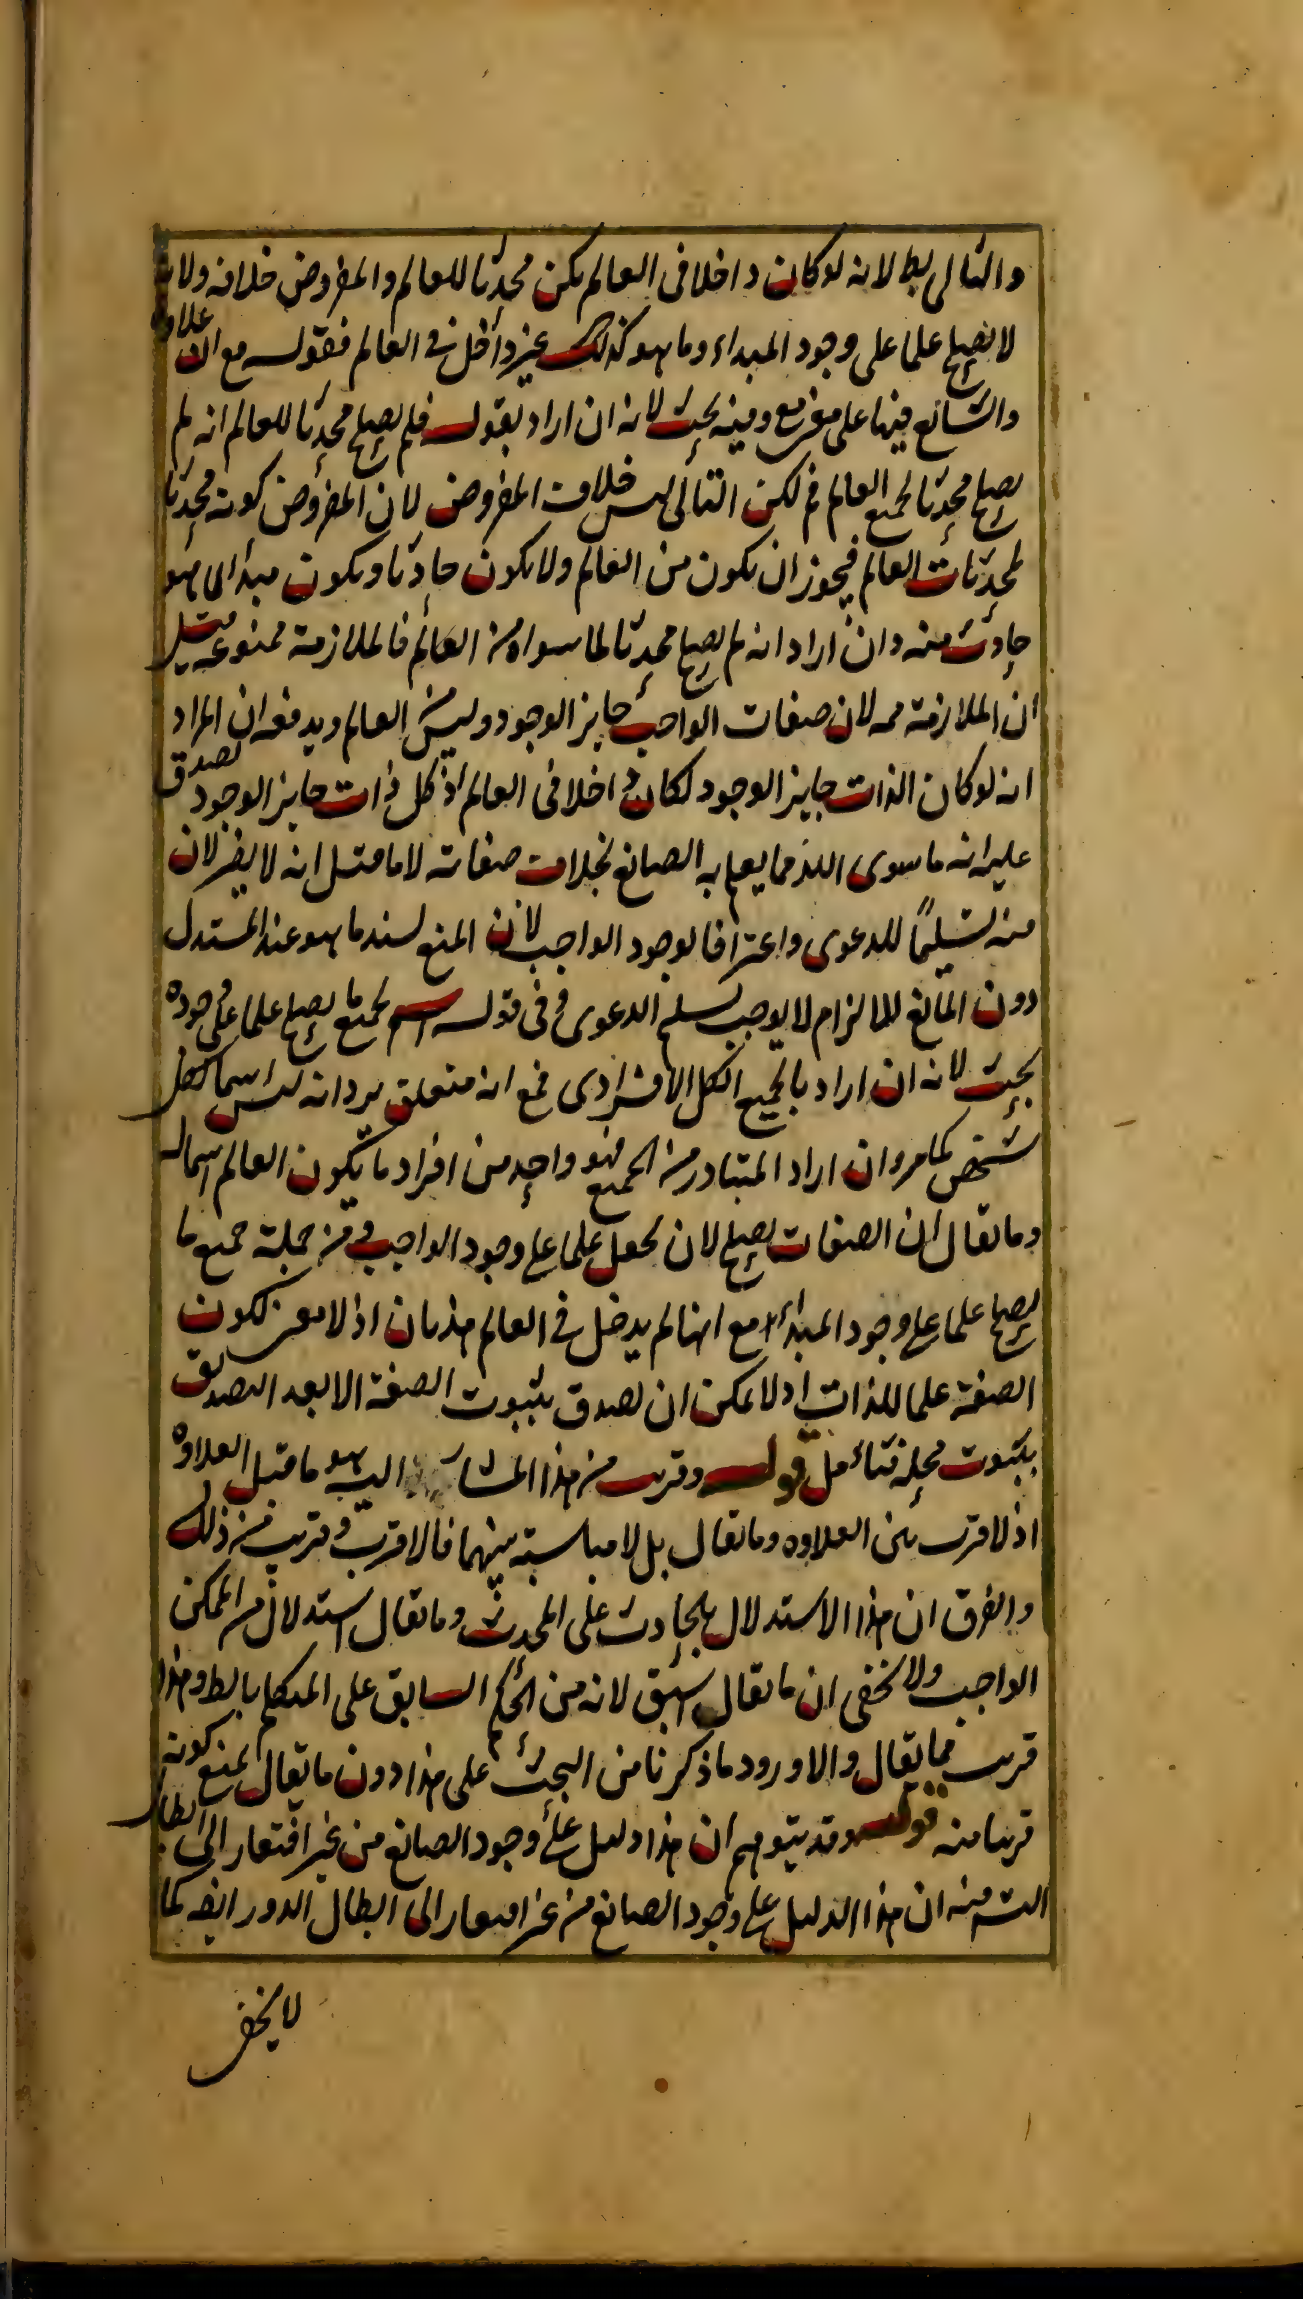 والتالى بط لانه لوكان داخلا فى العالم يكن محدثا للعالم والمفروض خلافه ولانه
لا يصلح علما على وجود المبداء وما هو كذلك غير داخل فى العالم فقوله مع ان علاوة
والشائع فيها على مع وفيه بحث لانه ان اراد بقوله فلم يصلح محدثا للعالم انه لم
يصلح محدثا لجميع العالم فم لكن التالى ليس خلاف المفروض لان المفروض كونه محدثا
لمحدثات العالم فيجوز ان يكون من العالم ولا يكون حادثا ويكون مبدا لما هو
حادث منه وان اراد انه لم يصلح محدثا لما سواه من العالم فالملازمة ممنوعة قيل
ان الملازمة مم لان صفات الواجب جايز الوجود وليس من العالم ويدفعه ان المراد
انه لو كان الذات جايز الوجود لكان داخلا فى العالم اذ كل ذات جايز الوجود تصدق
عليه انه ما سوى الله مما يعلم به الصانع بخلاف صفاته لا ما قيل انه لا يضر لان
منه تسليمًا للدعوى واعترافا بوجود الواجب لان المنع لسند ما هو عند المستدل
دون المانع للالزام لا يوجب تسليم الدعوى وفى قوله اسم لجميع ما يصلح علما على وجوده
بحث لانه ان اراد بالجميع الكل الافرادى فمع انه متعلق يرد انه ليس اسما لكل
شخص كما مر وان اراد المتبادر من الجميع فهو واحد من افراد ما يكون العالم اسما له
وما يقال ان الصفات يصلح لان يجعل علما على وجود الواجب فهى من جملة جميع ما
يصلح علما على وجود المبداء مع انها لم يدخل فى العالم هذيان اذ لا معنى لكون
الصفة علما للذات اذ لا يمكن ان يصدق بثبوت الصفة الا بعد التصديق
بثبوت محله فتاءمل قوله وقريب من هذا المشار اليه هو ما قبل العلاوه
اذ لا قرب بين العلاوه وما يقال بل لا مناسبته بينهما فالاقرب وقريب من ذلك
والفرق ان هذا الاستدلال بالحادث على المحدث وما يقال استدلال من الممكن
الواجب ولا يخفى ان ما يقال اسبق لانه من الحكم السابق على المتكلم بالط وهذا
قريب مما يقال والا ورود ما ذكرنا من البحث على هذا دون ما يقال يمنع كونه
قريبا منه قوله وقد يتوهم ان هذا دليل على وجود الصانع من غير افتقار الى ابطال
الت منه ان هذا الدليل على وجود الصانع من غير افتقار الى ابطال الدور ايضه كما
لا يخفى